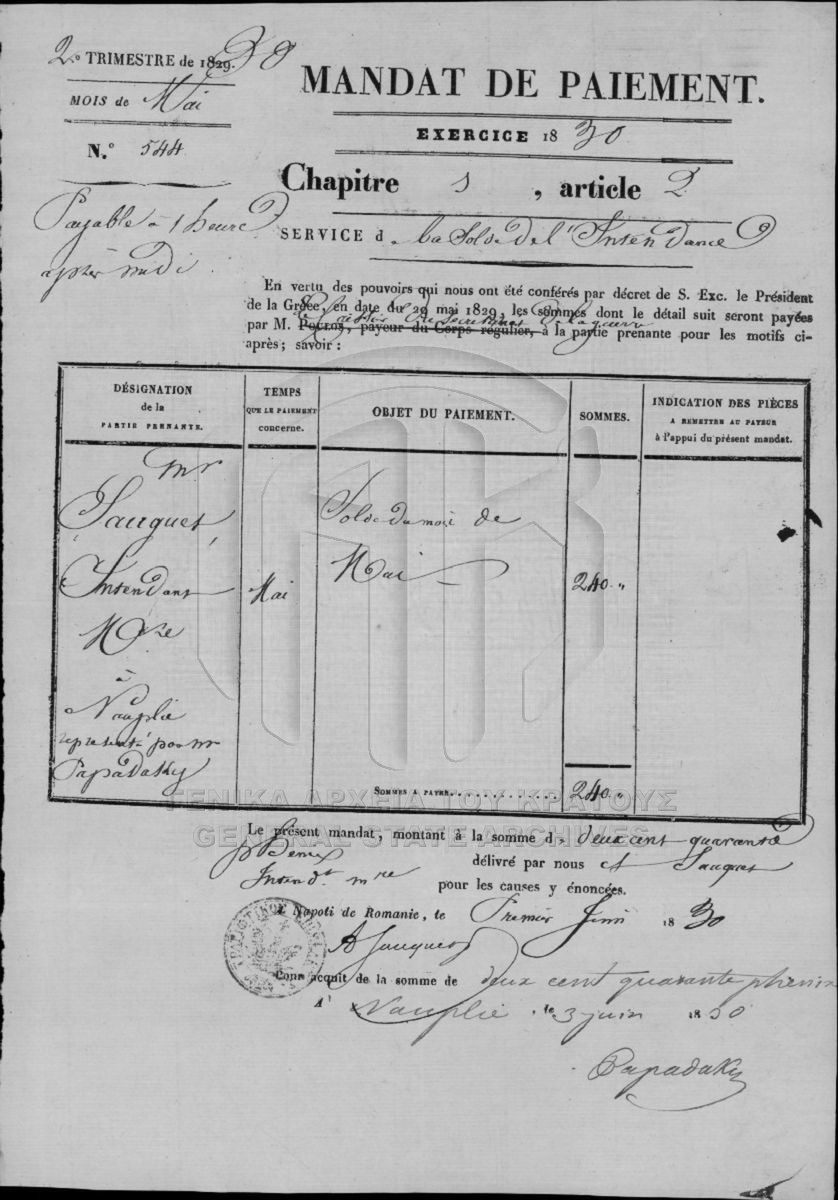 2e TRIMESTRE de 1829. 30
MOIS de Mai
N.° 544
Payable à 1 heure
après midi
MANDAT DE PAIEMENT.
EXERCICE 18 30
Chapitre 1 , article 2
SERVICE d e la Solde de l'Intendance
En vertu des pouvoirs qui nous ont été conférés par décret de S. Exc. le Président
de la Grèce, en date du 29 mai 1829, les sommes dont le détail suit seront payées
par M. Pocros, payeur du Corps régulier, à la partie prenante pour les motifs ci-
après; savoir :
DÉSIGNATION
de la
PARTIE PRENANTE.
TEMPS
QUE LE PAIEMENT
concerne.
OBJET DU PAIEMENT.
SOMMES.
INDICATION DES PIÈCES
A REMETTRE AU PAYEUR
à l'appui du présent mandat.
mr
Sauquet,
Intendant
Mre
à
Nauplie
représenté par mr
Papadaky
Mai
Solde du mois de
Mai
240 "
SOMMES A PAYER. 240 "
ΓΕΝΙΚΑ ΑΡΧΕΙΑ ΤΟΥ ΚΡΑΤΟΥΣ
GENERAL STATE ARCHIVES
Le présent mandat, montant à la somme de deux cent quarante
délivré par nous et Sauquet
Intendt mre pour les causes y énoncées.
Napoli de Romanie, le Premier Juin 18 30
A Sauquet
Pour acquit de la somme de deux cent quarante phenix
A Nauplie, le 3 juin 1830
Papadaky